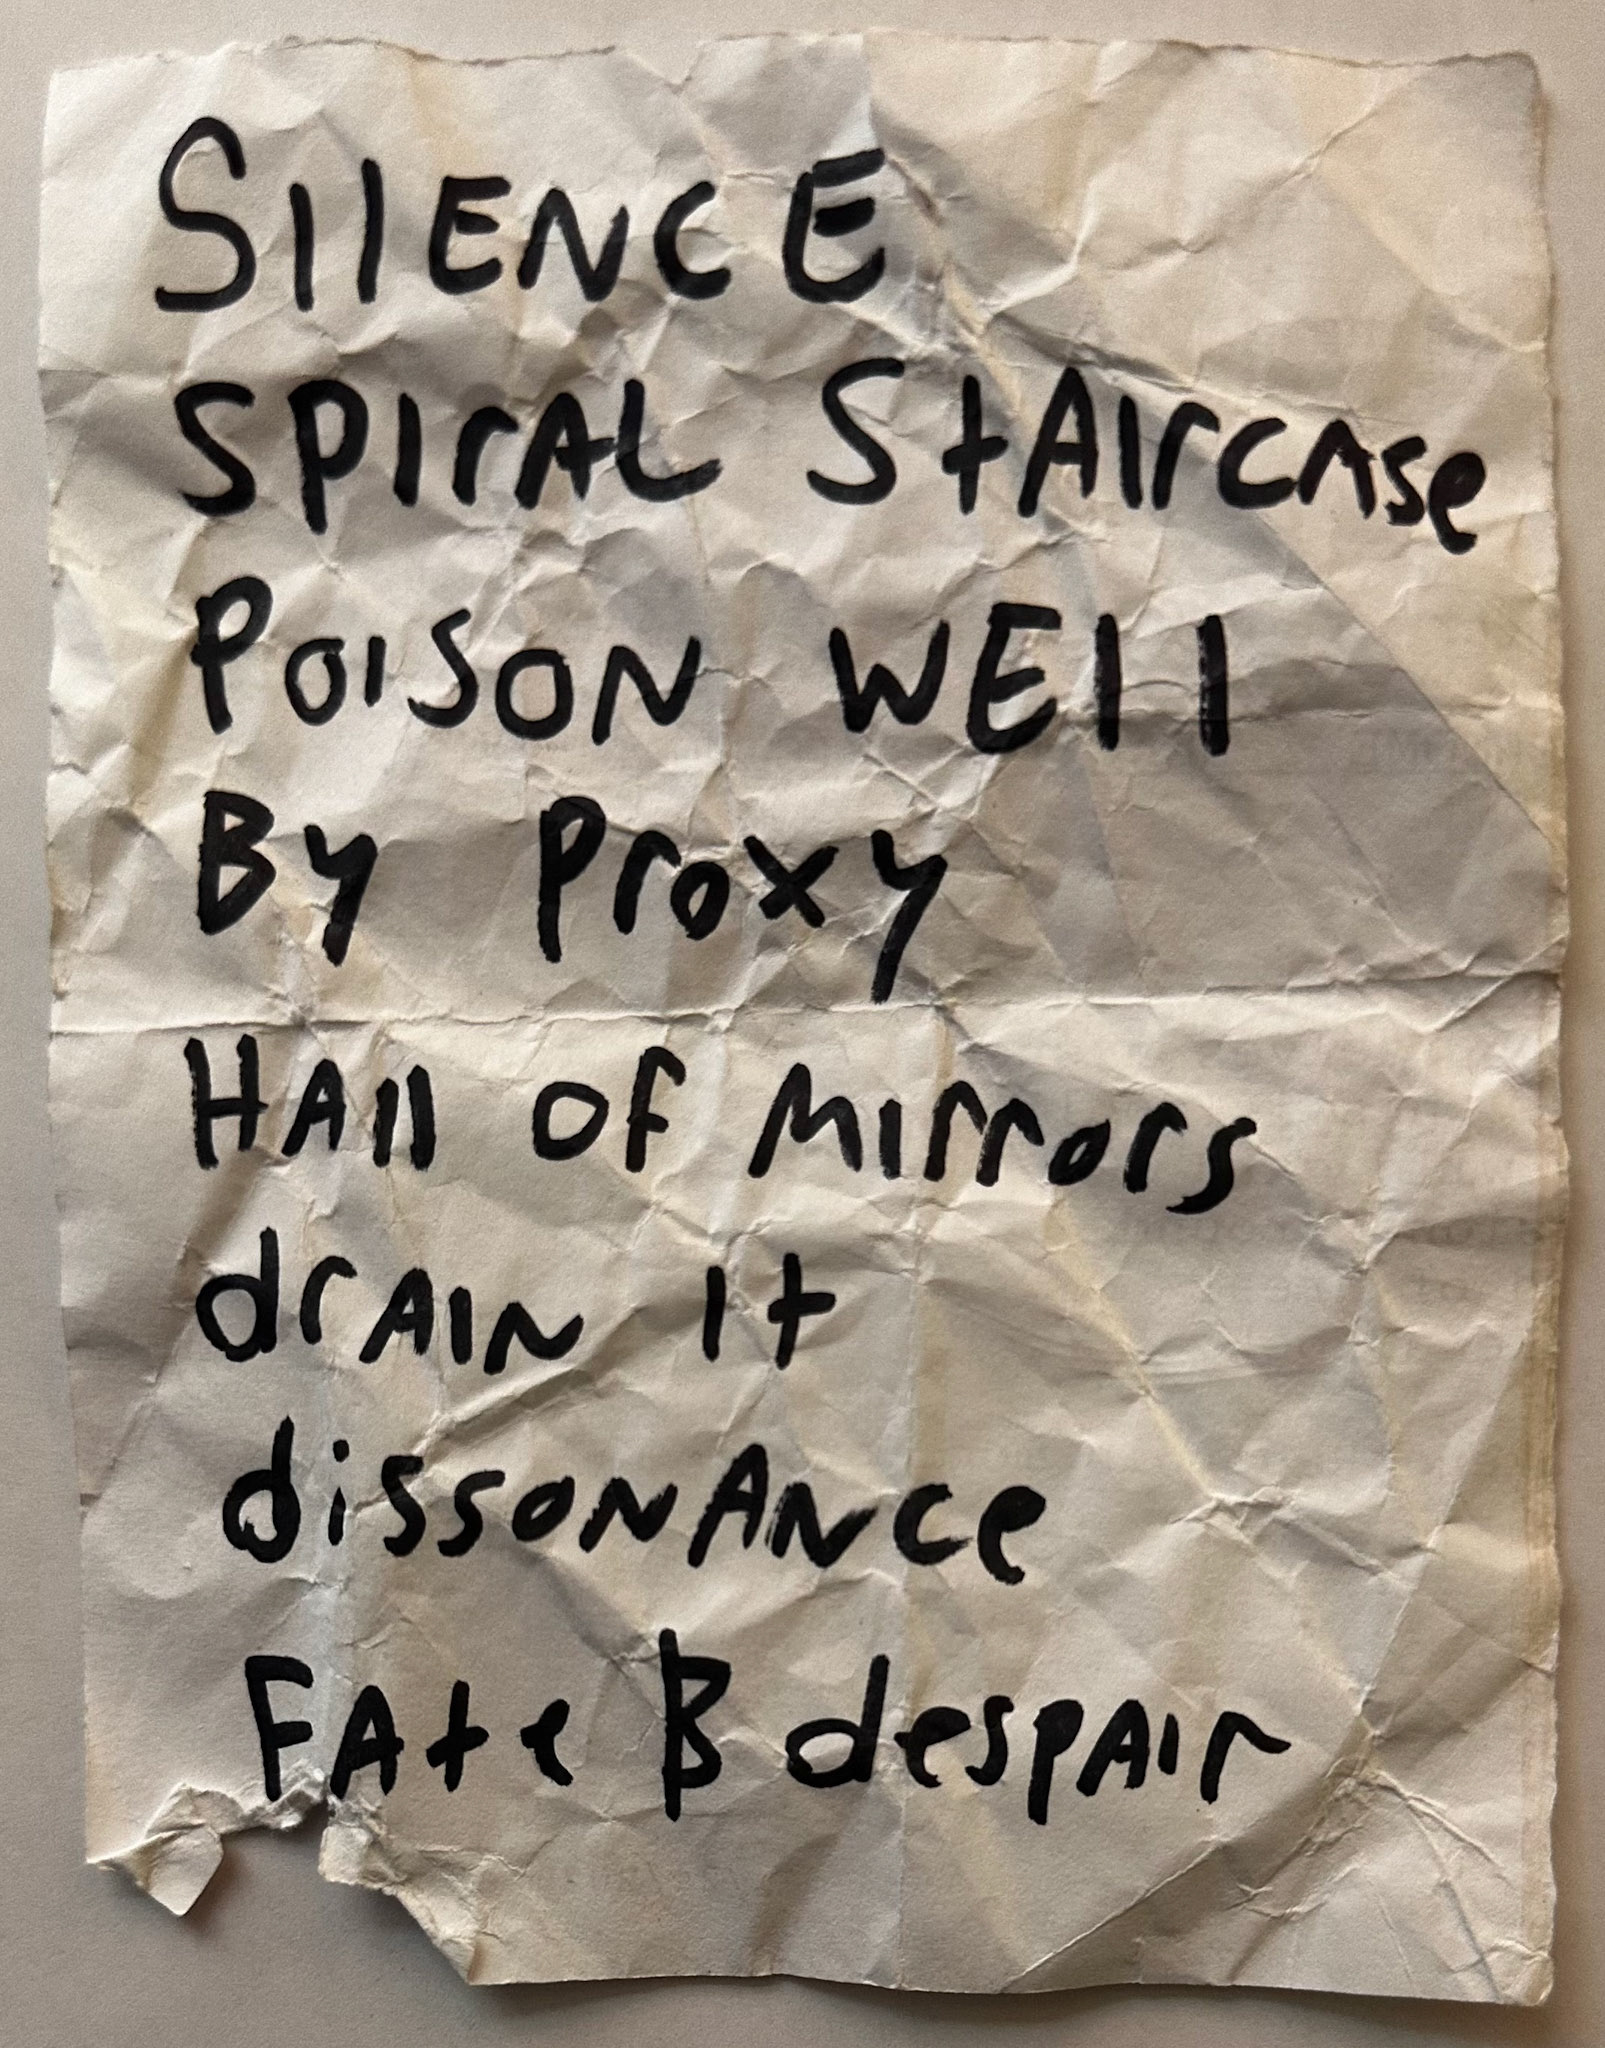 SIlENCE
SPIrAL StAIrcAse
POISON WEll
By Proxy
HAll OF MIrrors
drAIN It
dissonAnce
FAte B despAIr